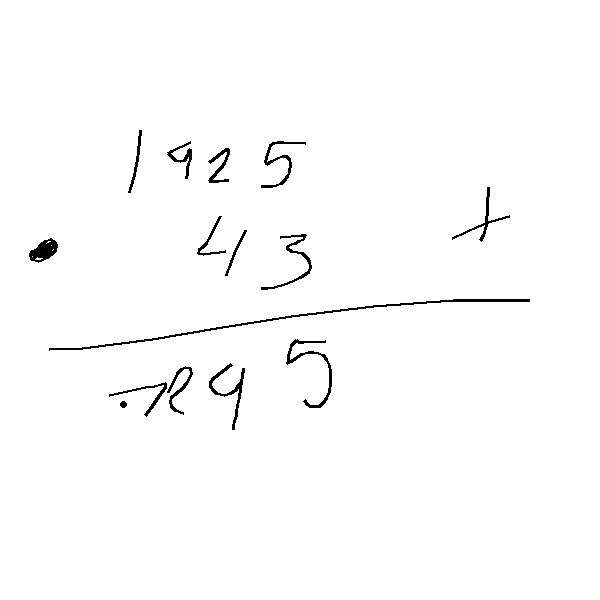 1925
43 +
95